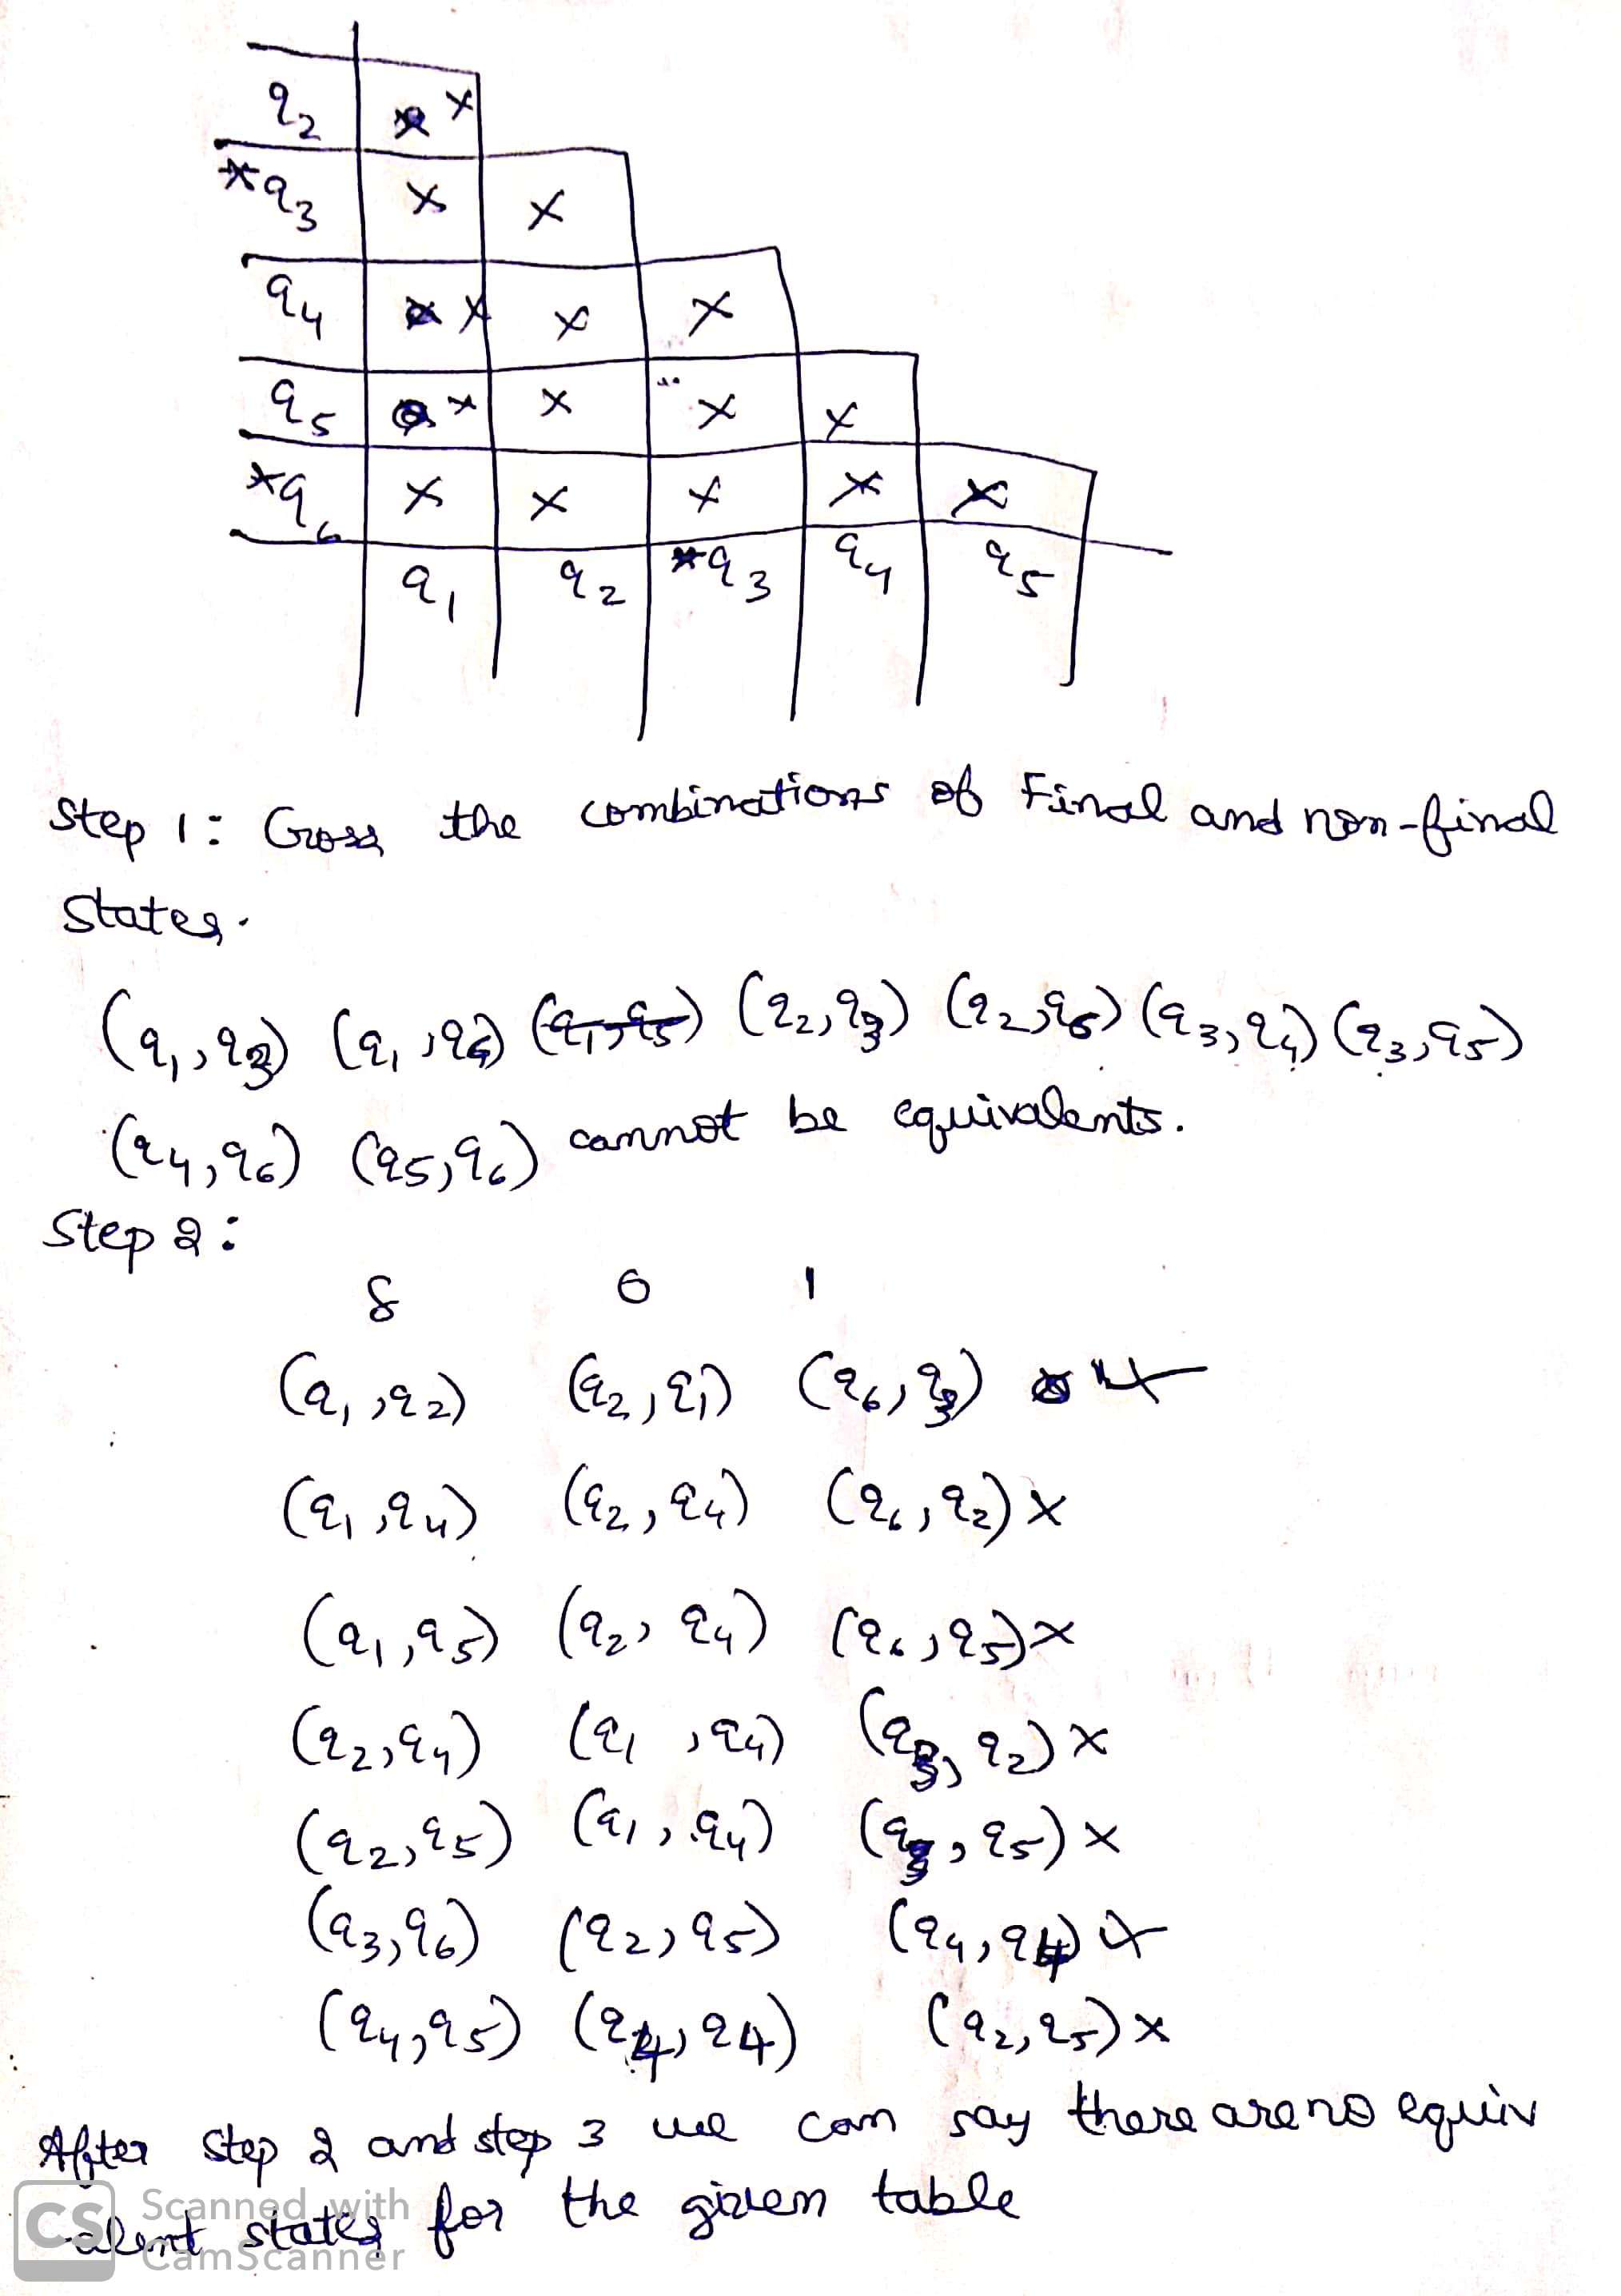 q2 x
*q3 x x
q4 x x x
q5 x x x x
*q6 x x x x x
q1 q2 *q3 q4 q5
Step 1: Cross the combinations of Final and non-final
states.
(q1,q3) (q1,q6) (q1,q5) (q2,q3) (q2,q6) (q3,q4) (q3,q5)
(q4,q6) (q5,q6) cannot be equivalents.
Step 2:
δ 0 1
(q1,q2) (q2,q1) (q6,q3) x
(q1,q4) (q2,q4) (q6,q2) x
(q1,q5) (q2,q4) (q6,q5) x
(q2,q4) (q1,q4) (q3,q2) x
(q2,q5) (q1,q4) (q3,q5) x
(q3,q6) (q2,q5) (q4,q4) x
(q4,q5) (q4,q4) (q2,q5) x
After step 2 and step 3 we can say there are no equiv
alent states for the given table
CS Scanned with
CamScanner